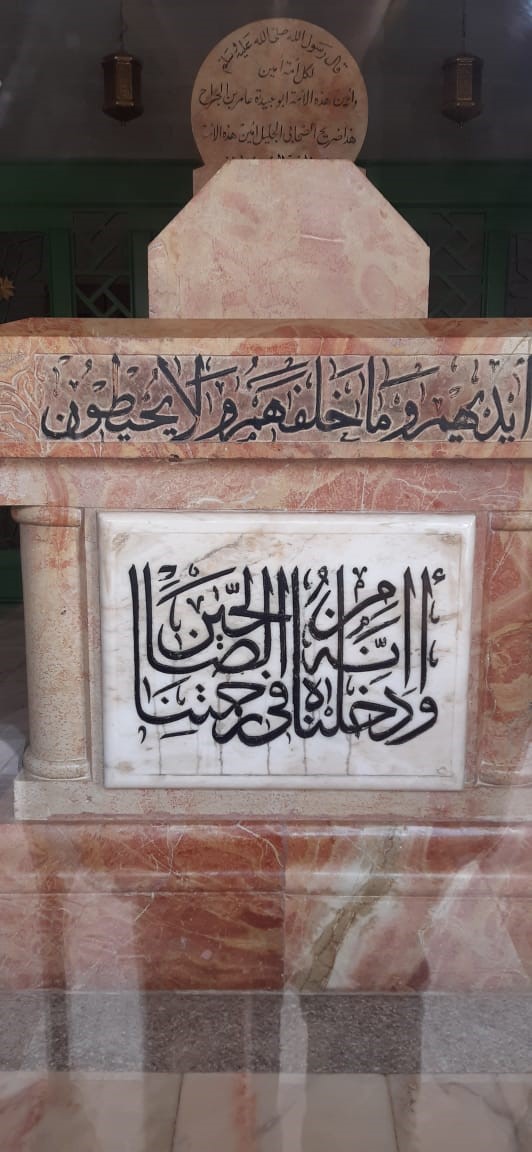 قال رسول الله صلى الله عليه وسلم
لكل أمة أمين
وأمين هذه الأمة ابو عبيدة عامر بن الجراح
هذا ضريح الصحابي الجليل أمين هذه الأمة
أيديهم وما خلفهم ولا يحيطون
وأدخلناه في رحمتنا إنه من الصالحين